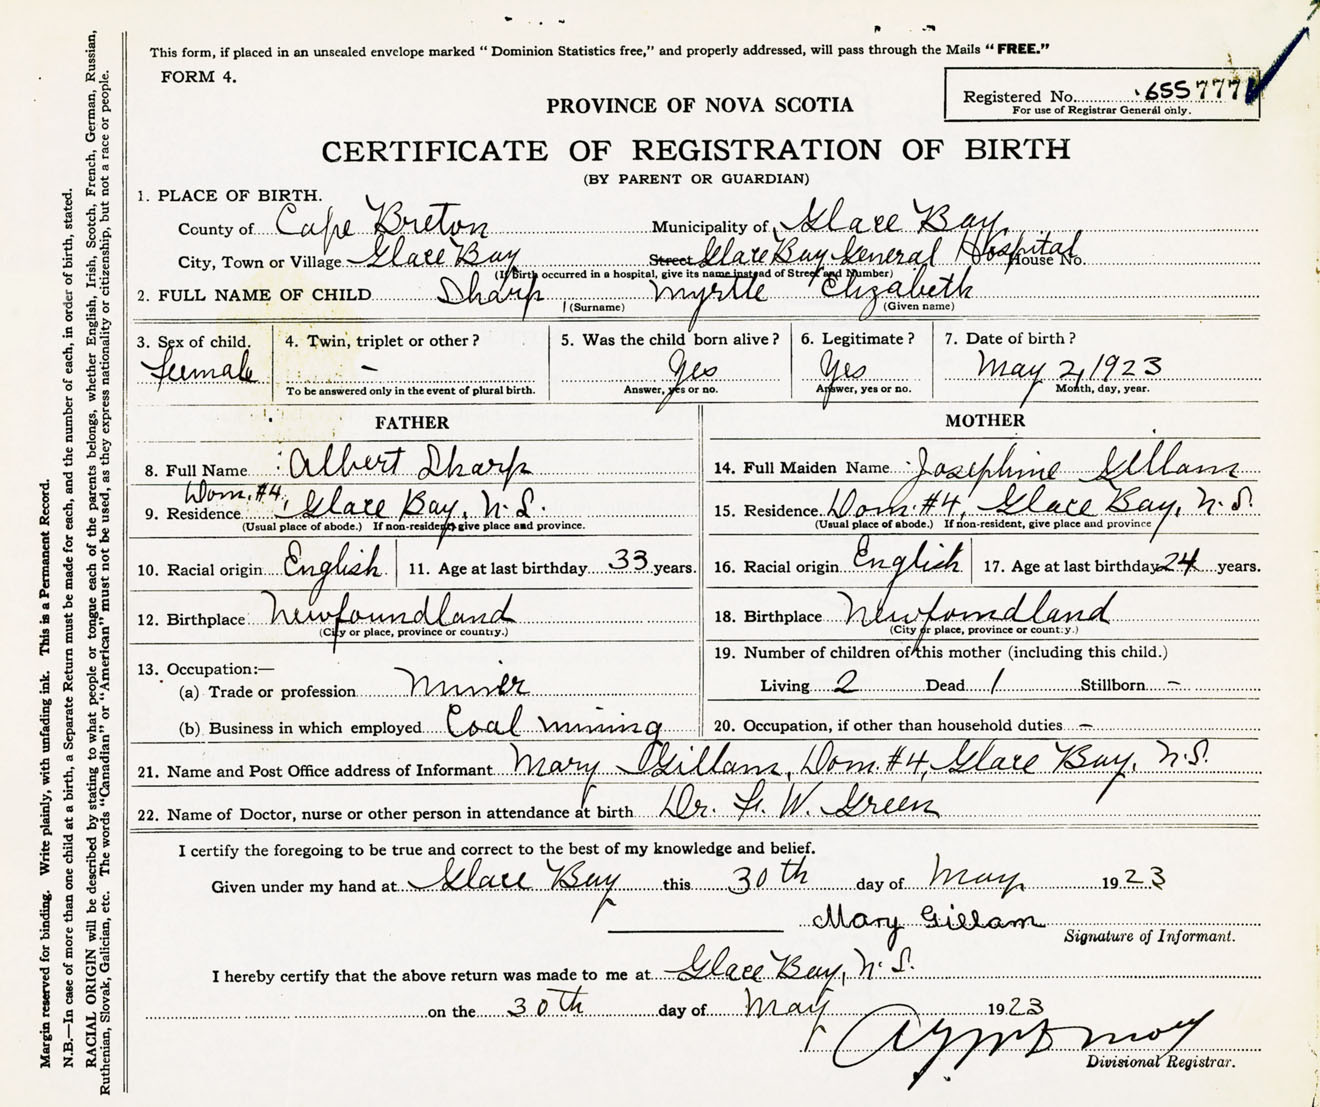 This form, if placed in an unsealed envelope marked "Dominion Statistics free," and properly addressed, will pass through the Mails "FREE."
FORM 4.
Registered No. 655777
For use of Registrar General only.
PROVINCE OF NOVA SCOTIA
CERTIFICATE OF REGISTRATION OF BIRTH
(BY PARENT OR GUARDIAN)
1. PLACE OF BIRTH.
County of Cape Breton Municipality of Glace Bay
City, Town or Village Glace Bay Street Glace Bay General Hospital House No.
(If birth occurred in a hospital, give its name instead of Street and Number)
2. FULL NAME OF CHILD Sharp Myrtle Elizabeth
(Surname) (Given name)
3. Sex of child. 4. Twin, triplet or other? 5. Was the child born alive? 6. Legitimate? 7. Date of birth?
female - Yes Yes May 2, 1923
To be answered only in the event of plural birth. Answer, yes or no. Answer, yes or no. Month, day, year.
FATHER
8. Full Name Albert Sharp
Dom. #4,
9. Residence Glace Bay, N.S.
(Usual place of abode.) If non-resident, give place and province.
10. Racial origin English 11. Age at last birthday 33 years.
12. Birthplace Newfoundland
(City or place, province or country.)
13. Occupation:—
(a) Trade or profession Miner
(b) Business in which employed Coal mining
MOTHER
14. Full Maiden Name Josephine Gillam
15. Residence Dom. #4, Glace Bay, N.S.
(Usual place of abode.) If non-resident, give place and province
16. Racial origin English 17. Age at last birthday 24 years.
18. Birthplace Newfoundland
(City or place, province or country.)
19. Number of children of this mother (including this child.)
Living 2 Dead 1 Stillborn -
20. Occupation, if other than household duties -
21. Name and Post Office address of Informant Mary Gillam, Dom. #4, Glace Bay, N.S.
22. Name of Doctor, nurse or other person in attendance at birth Dr. F. W. Green
I certify the foregoing to be true and correct to the best of my knowledge and belief.
Given under my hand at Glace Bay this 30th day of May 1923
Mary Gillam
Signature of Informant.
I hereby certify that the above return was made to me at Glace Bay, N.S.
on the 30th day of May 1923
Divisional Registrar.
Margin reserved for binding. Write plainly, with unfading ink. This is a Permanent Record.
N.B.—In case of more than one child at a birth, a Separate Return must be made for each, and the number of each, in order of birth, stated.
RACIAL ORIGIN will be described by stating to what people or tongue each of the parents belongs, whether English, Irish, Scotch, French, German, Russian,
Ruthenian, Slovak, Galician, etc. The words "Canadian" or "American" must not be used, as they express nationality or citizenship, but not a race or people.